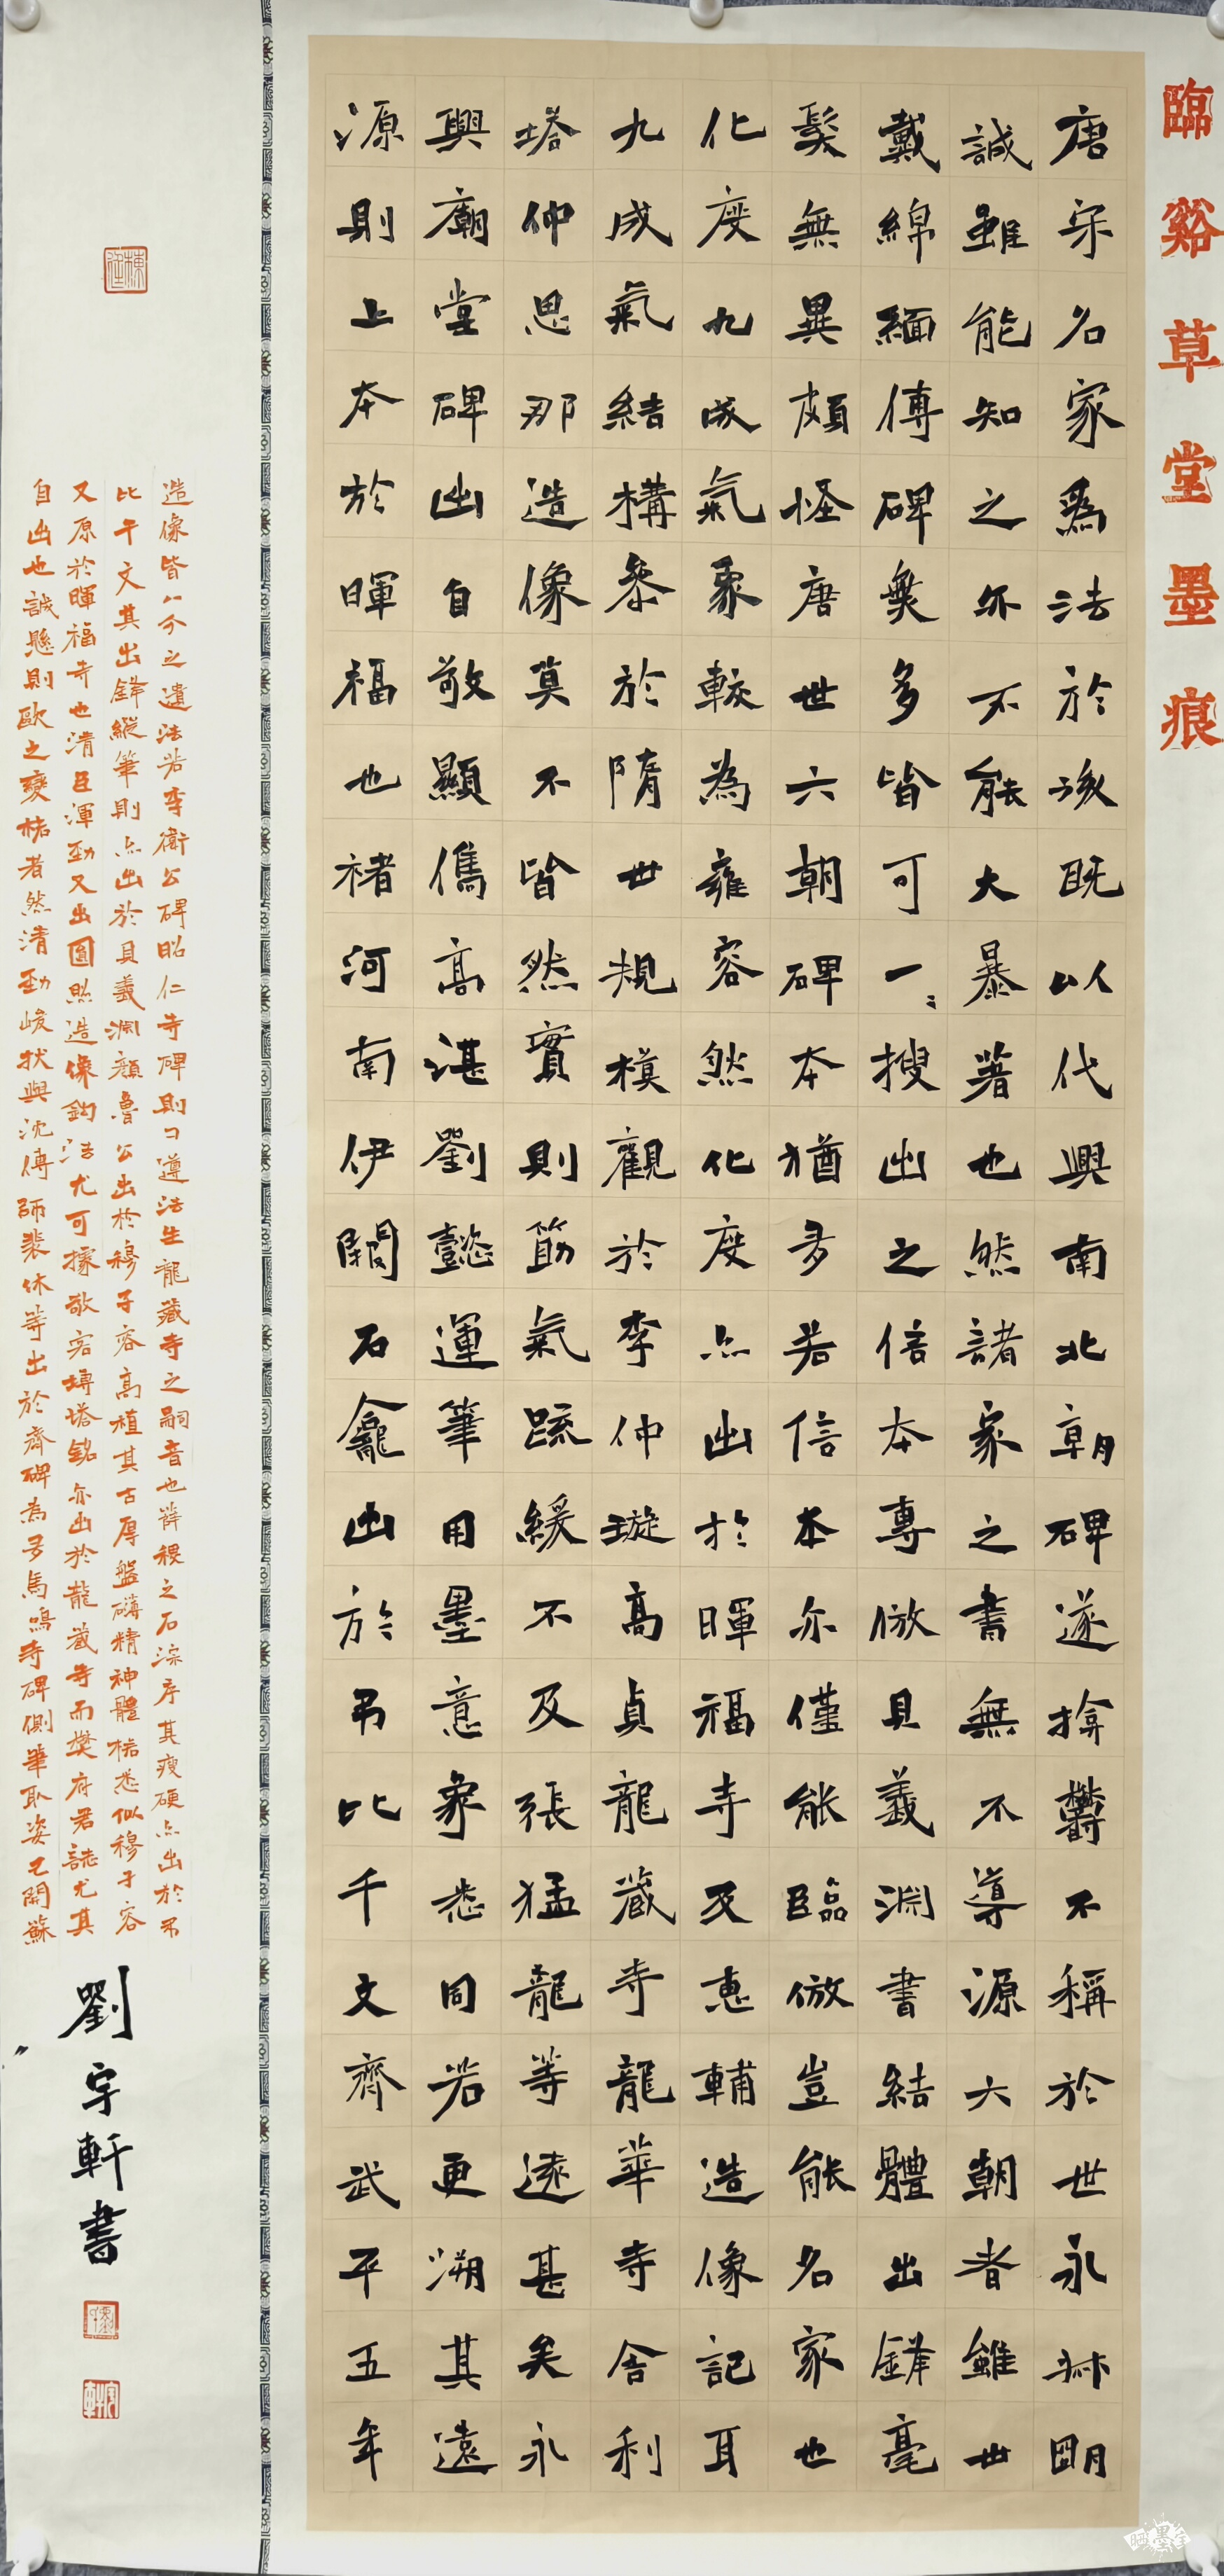 臨谿草堂墨痕
唐宋名家爲法於後既以代興南北朝碑遂揜鬱不稱於世永叔明
誠雖能知之亦不能大暴著也然諸家之書無不導源六朝者雖世
戴綿緬傳碑無多皆可一二搜出之信本專倣具義淵書結體出鋒毫
髮無異頗怪唐世六朝碑本猶多若信本亦僅能臨倣豈能名家也
化度九成氣象較為雍容然化度亦出於暉福寺及惠輔造像記耳
九成氣結構叅於隋世規模觀於李仲璇高貞龍藏寺龍華寺舍利
塔仲思那造像莫不皆然實則筋氣疏緩不及張猛龍等遠甚矣永
興廟堂碑出自敬顯儁高湛劉懿運筆用墨意象悉同若更溯其遠
源則上本於暉福也褚河南伊闕石龕出於弔比干文齊武平五年
造像皆八分之遺法若李衛公碑昭仁寺碑則丁遵法生龍藏寺之嗣音也薛稷之石淙序其瘦硬亦出於弔
比干文其出鋒縱筆則亦出於具義淵顏魯公出於穆子容高植其古厚盤礴精神體格悉似穆子容
又原於暉福寺也清臣渾勁又出圓照造像鈎法尤可據敬客塼塔銘亦出於龍藏寺而樊府君誌尤其
自出也誠懸則歐之變格者然清勁峻拔與沈傳師裴休等出於齊碑為多馬鳴寺碑側筆取姿已開蘇
劉宇軒書
晒墨宝